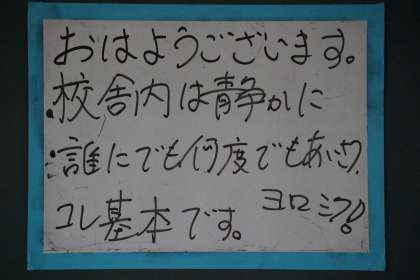 おはようございます。
校舎内は静かに
誰にでも何度でもあいさつ
コレ基本です。 ヨロシク!